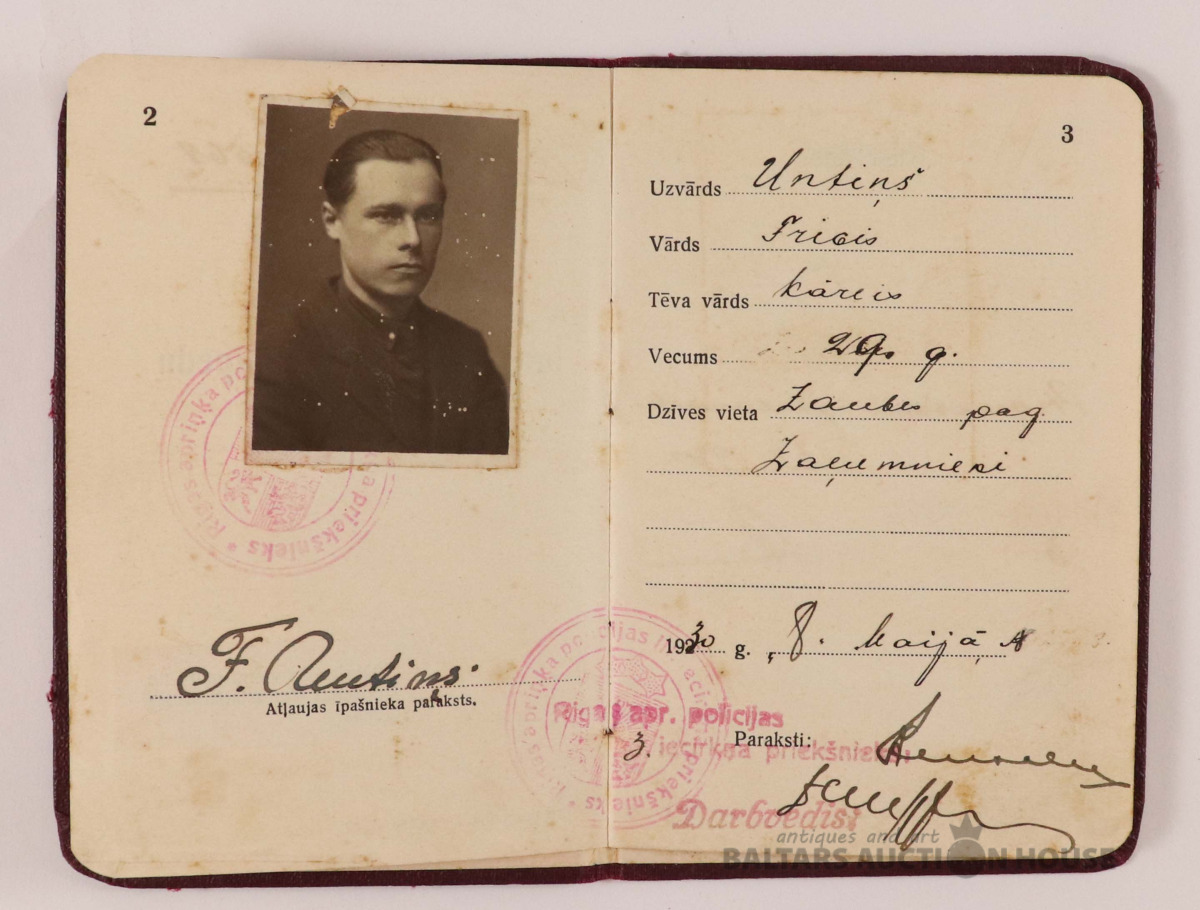 2
Rīgas apriņķa policijas
iecirkņa priekšnieks *
F. Untiņš.
Atļaujas īpašnieka paraksts.
3
Uzvārds Untiņš
Vārds Fricis
Tēva vārds Kārlis
Vecums 29 g.
Dzīves vieta Zaubes pag.
Zaļumnieki
1930 g. 8. Maijā
Rīgas apr. policijas
3. iecirkņa priekšnieks:
Paraksti:
Darbvedis:
antiques and art
BALTARS AUCTION HOUSE